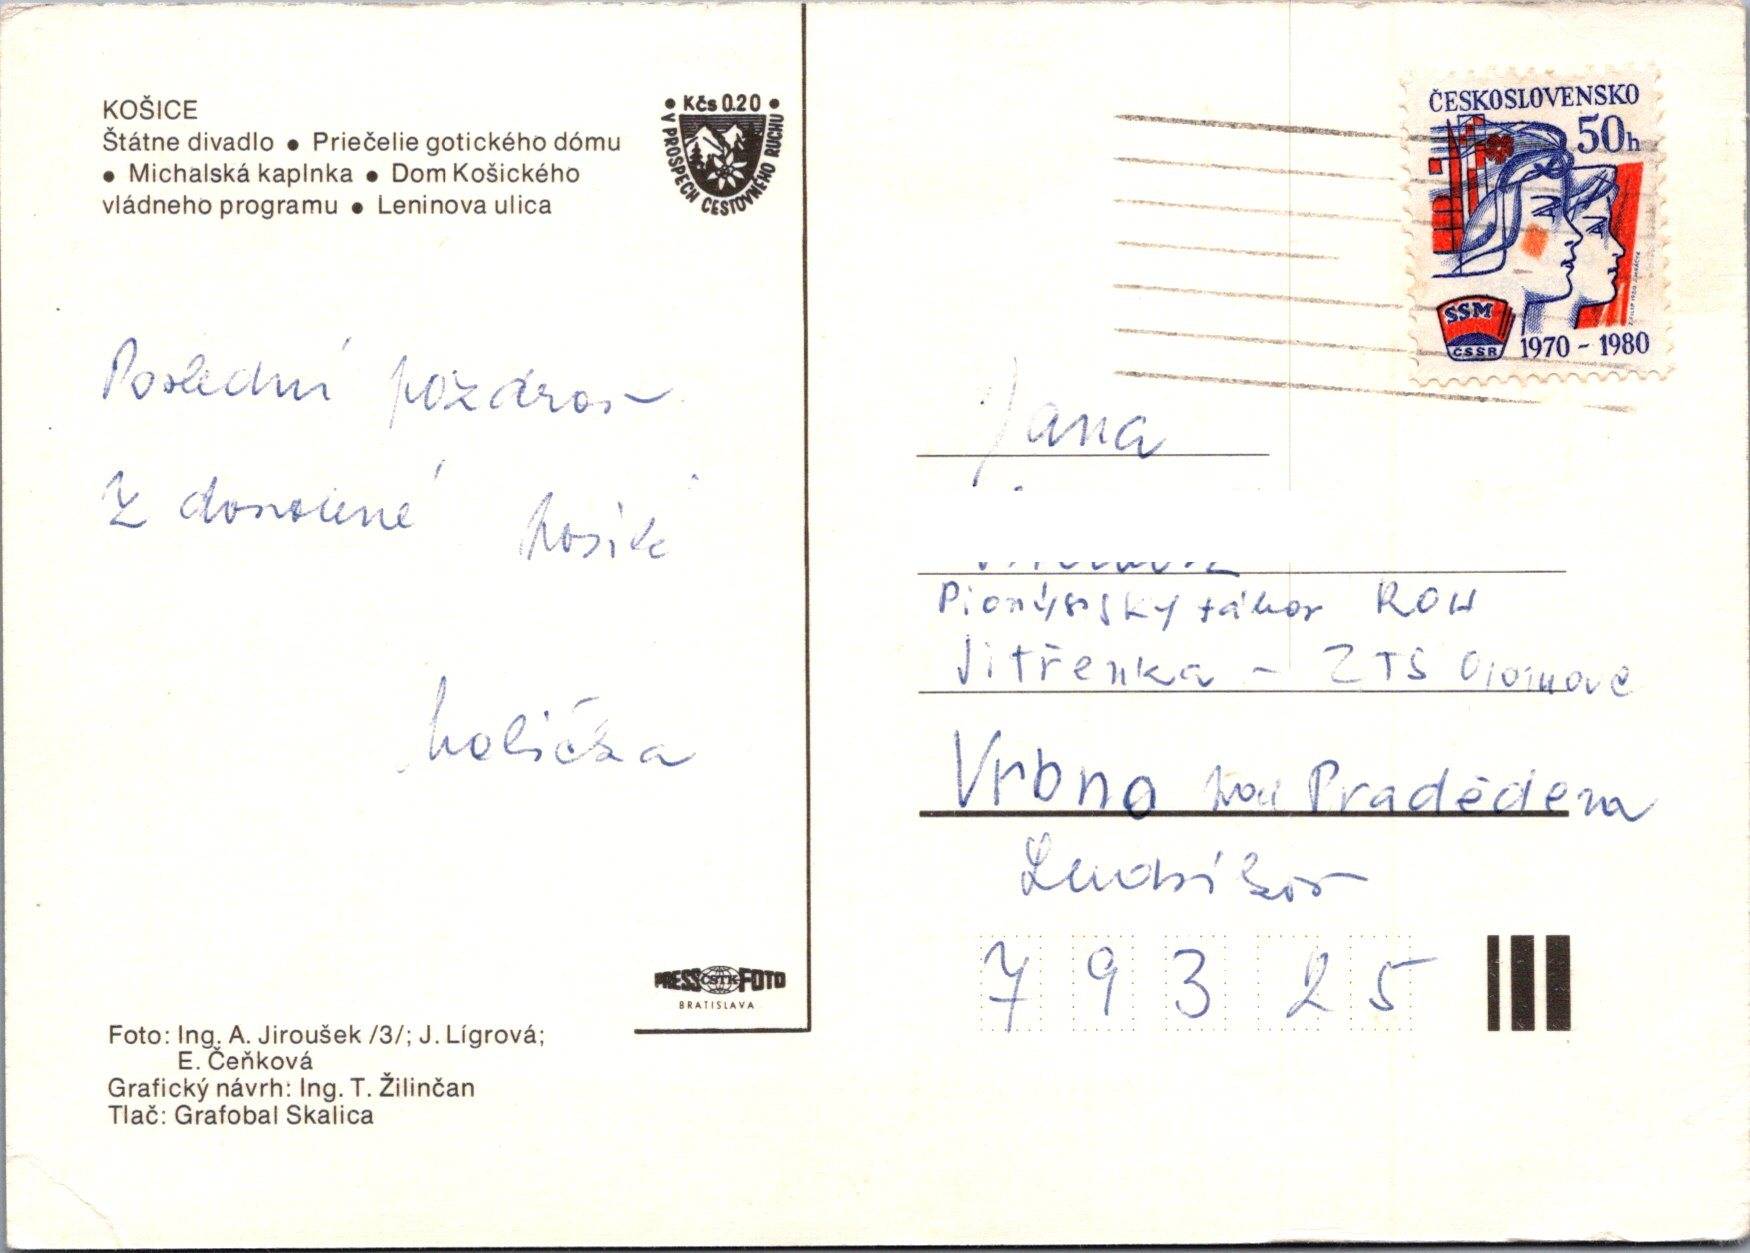 KOŠICE
Štátne divadlo ● Priečelie gotického dómu
● Michalská kaplnka ● Dom Košického
vládneho programu ● Leninova ulica
● Kčs 0.20 ●
V PROSPECH CESTOVNÉHO RUCHU
Poslední pozdrav
z dovolené posílá
ČESKOSLOVENSKO
50h
SSM
ČSSR
1970 - 1980
Jana
Pionýrský tábor ROH
Jitřenka - ZTS Olomouc
Vrbno pod Pradědem
793 25
PRESS ČSTK FOTO
BRATISLAVA
Foto: Ing. A. Jiroušek /3/; J. Lígrová;
E. Čeňková
Grafický návrh: Ing. T. Žilinčan
Tlač: Grafobal Skalica